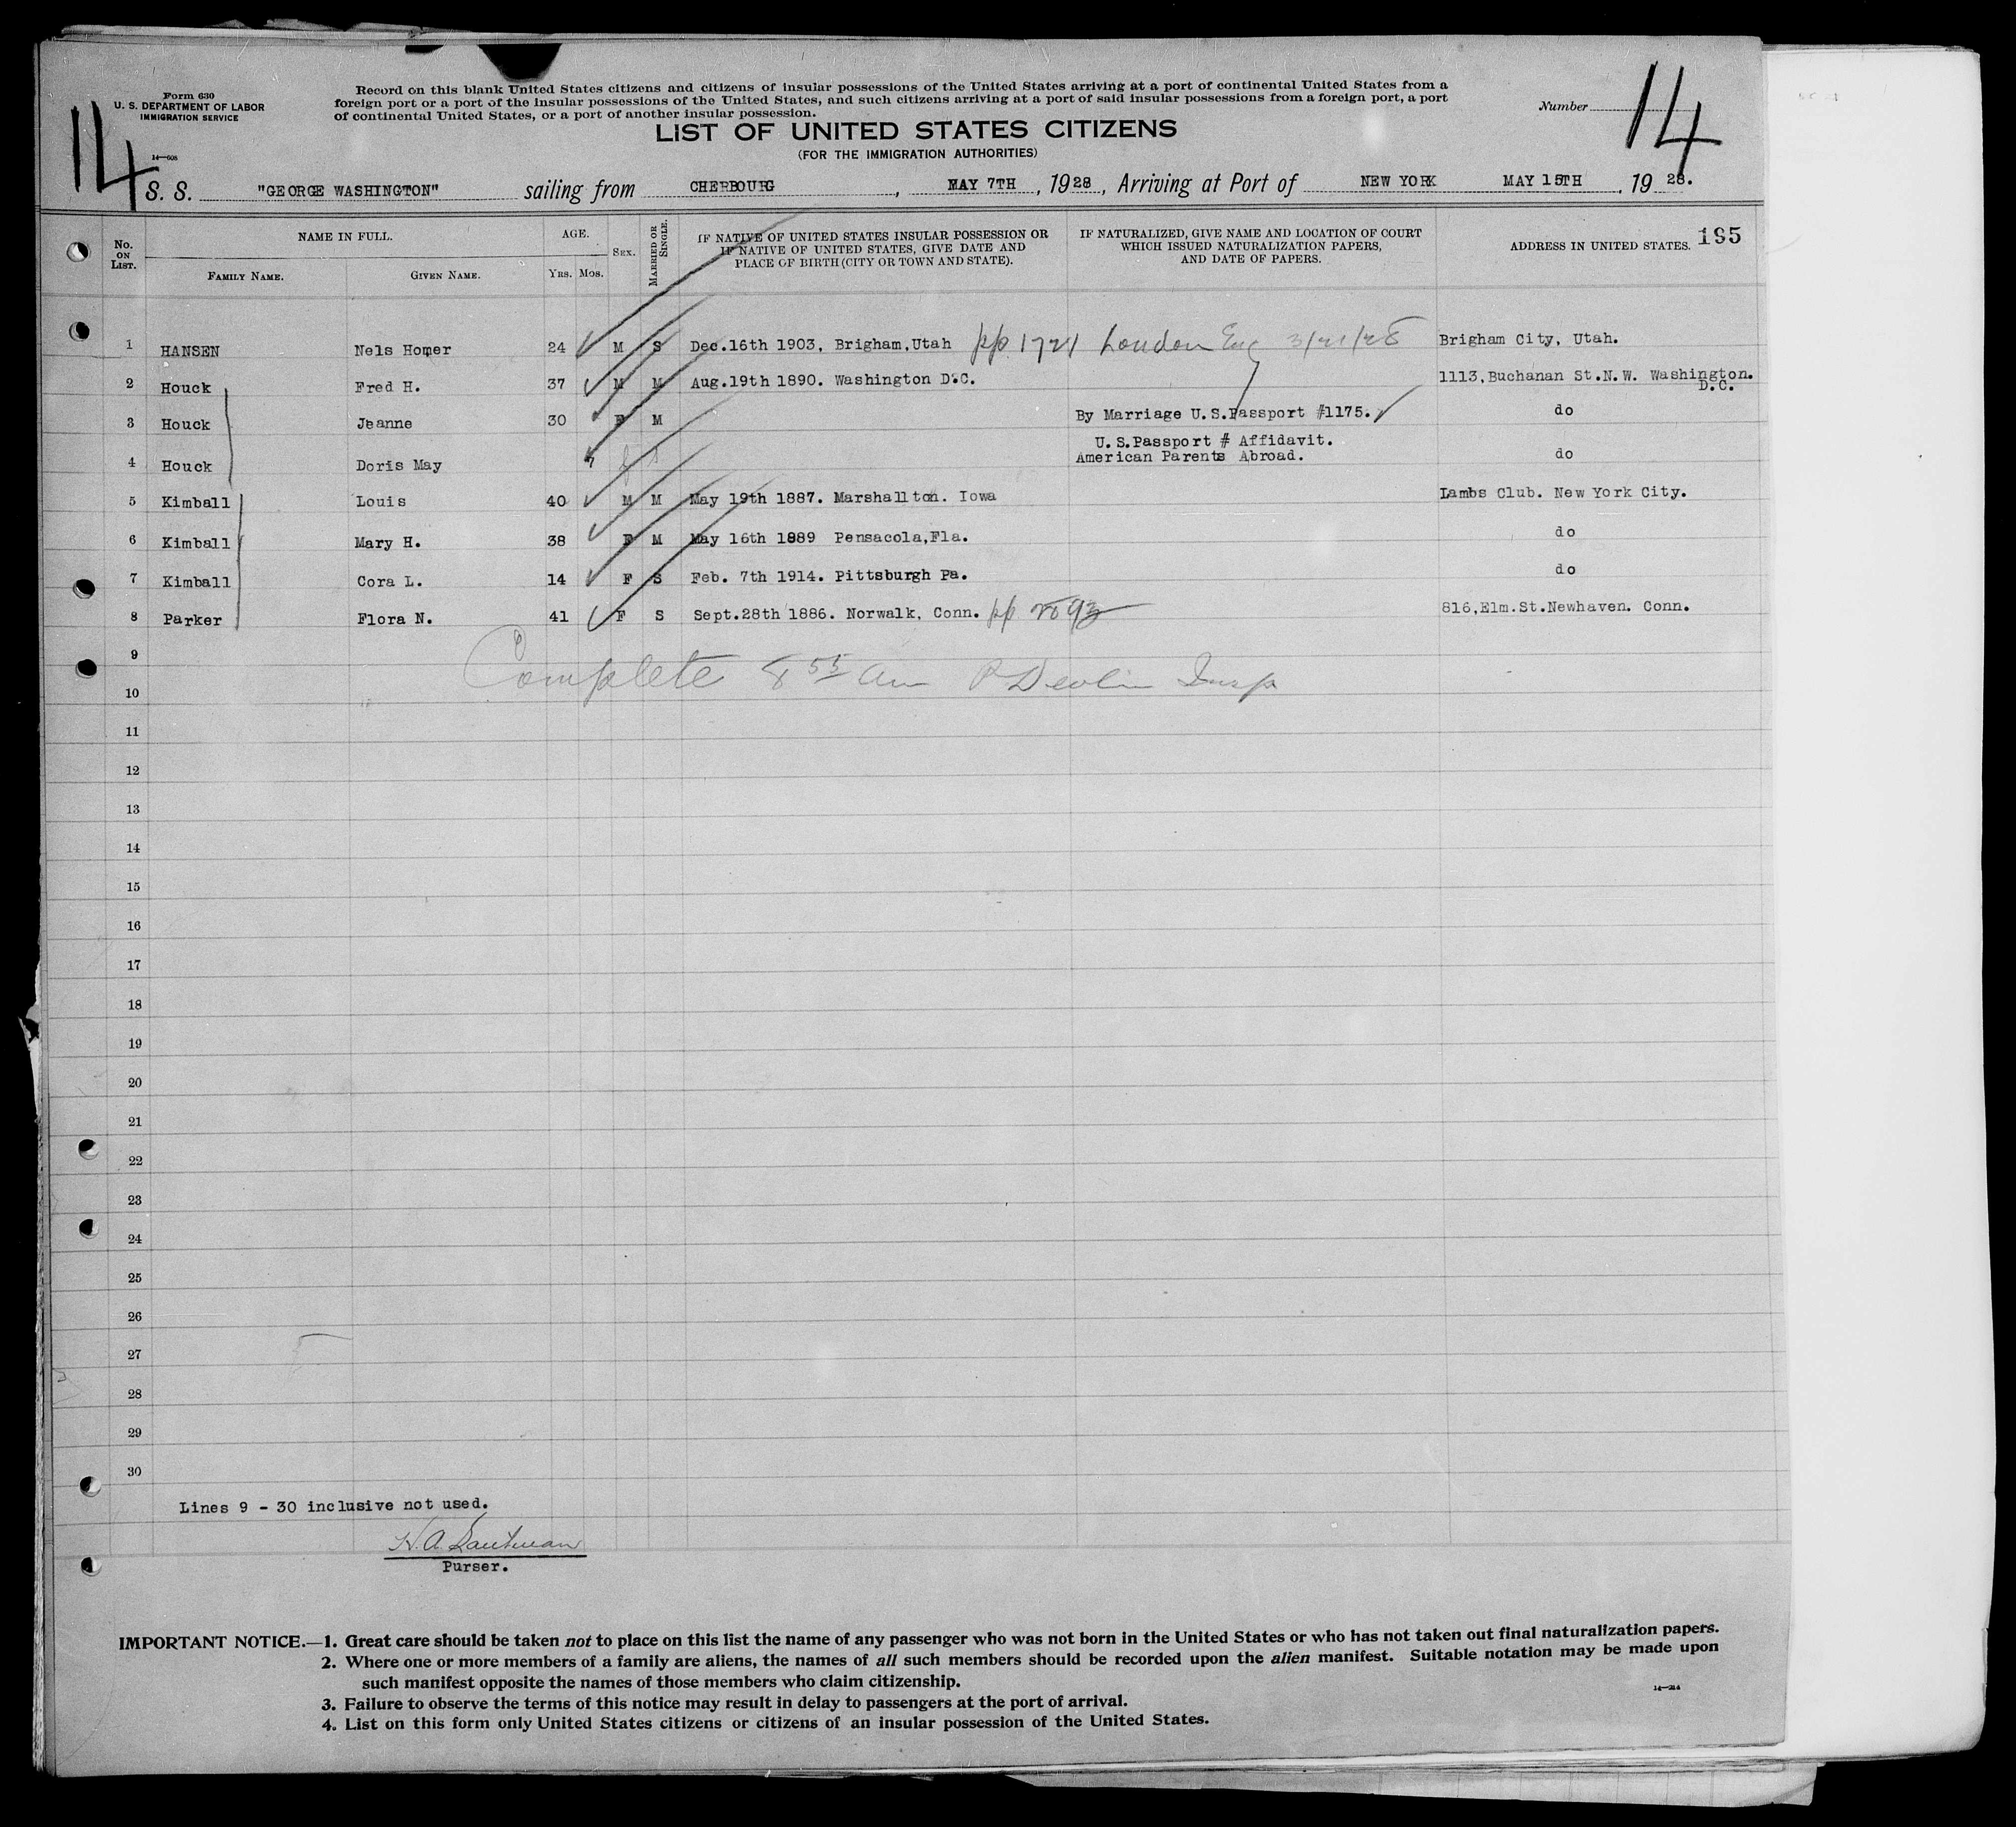 Form 630
U. S. DEPARTMENT OF LABOR
IMMIGRATION SERVICE
14—608
Record on this blank United States citizens and citizens of insular possessions of the United States arriving at a port of continental United States from a
foreign port or a port of the insular possessions of the United States, and such citizens arriving at a port of said insular possessions from a foreign port, a port
of continental United States, or a port of another insular possession.
Number
14
14
LIST OF UNITED STATES CITIZENS
(FOR THE IMMIGRATION AUTHORITIES)
S. S. "GEORGE WASHINGTON" sailing from CHERBOURG, MAY 7TH, 1928, Arriving at Port of NEW YORK MAY 15TH, 1928.
195
No. ON LIST. NAME IN FULL. FAMILY NAME. GIVEN NAME. AGE. YRS. MOS. SEX. MARRIED OR SINGLE. IF NATIVE OF UNITED STATES INSULAR POSSESSION OR IF NATIVE OF UNITED STATES, GIVE DATE AND PLACE OF BIRTH (CITY OR TOWN AND STATE). IF NATURALIZED, GIVE NAME AND LOCATION OF COURT WHICH ISSUED NATURALIZATION PAPERS, AND DATE OF PAPERS. ADDRESS IN UNITED STATES.
1 HANSEN Nels Homer 24 M S Dec.16th 1903, Brigham,Utah pp London Eng Brigham City, Utah.
2 Houck Fred H. 37 M M Aug.19th 1890. Washington D.C. 1113,Buchanan St.N.W. Washington. D.C.
3 Houck Jeanne 30 F M By Marriage U.S.Passport #1175. do
4 Houck Doris May 7 f s U.S.Passport # Affidavit. American Parents Abroad. do
5 Kimball Louis 40 M M May 19th 1887. Marshallton. Iowa Lambs Club. New York City.
6 Kimball Mary H. 38 F M May 16th 1889 Pensacola,Fla. do
7 Kimball Cora L. 14 F S Feb. 7th 1914. Pittsburgh Pa. do
8 Parker Flora N. 41 F S Sept.28th 1886. Norwalk, Conn. pp 816,Elm.St.Newhaven. Conn.
9
Complete 8 55 am P Devlin Insp
10
11
12
13
14
15
16
17
18
19
20
21
22
23
24
25
26
27
28
29
30
Lines 9 - 30 inclusive not used.
Purser.
IMPORTANT NOTICE.—1. Great care should be taken not to place on this list the name of any passenger who was not born in the United States or who has not taken out final naturalization papers.
2. Where one or more members of a family are aliens, the names of all such members should be recorded upon the alien manifest. Suitable notation may be made upon
such manifest opposite the names of those members who claim citizenship.
3. Failure to observe the terms of this notice may result in delay to passengers at the port of arrival.
4. List on this form only United States citizens or citizens of an insular possession of the United States.
14—214